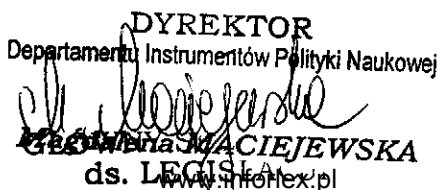 DYREKTOR
Departamentu Instrumentów Polityki Naukowej
Magdalena MACIEJEWSKA
ds. LEGISLA
www.inforlex.pl